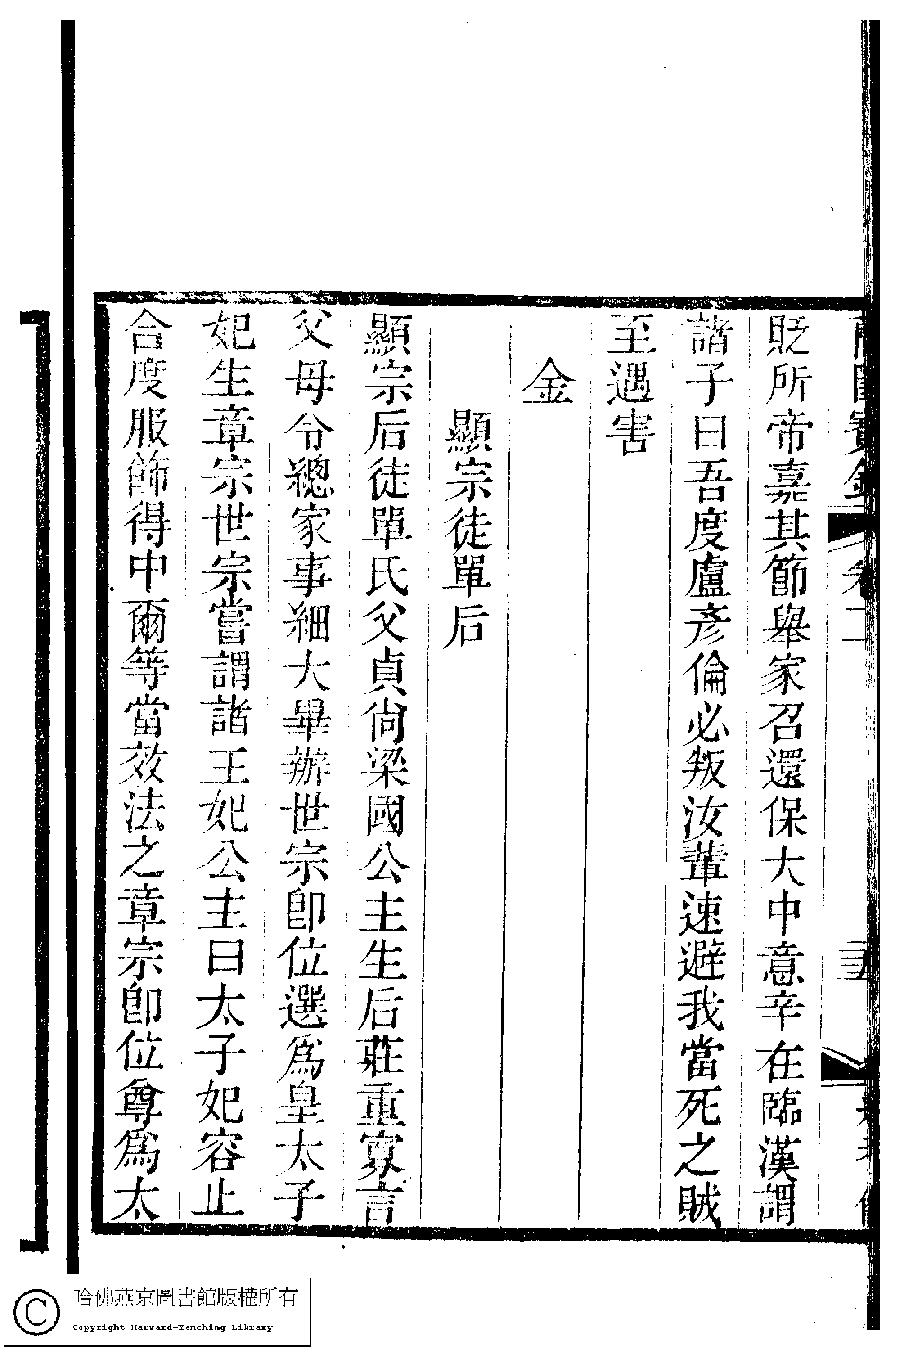 貶所帝嘉其節舉家召還保大中意辛在臨漢謂
諸子曰吾度盧彥倫必叛汝輩速避我當死之賊
至遇害
金
顯宗徒單后
顯宗后徒單氏父貞尙梁國公主生后莊重寡言
父母令總家事細大畢辦世宗卽位選爲皇太子
妃生章宗世宗嘗謂諸王妃公主曰太子妃容止
合度服飾得中爾等當效法之章宗卽位尊爲太
哈佛燕京圖書館版權所有
Copyright Harvard-Yenching Library